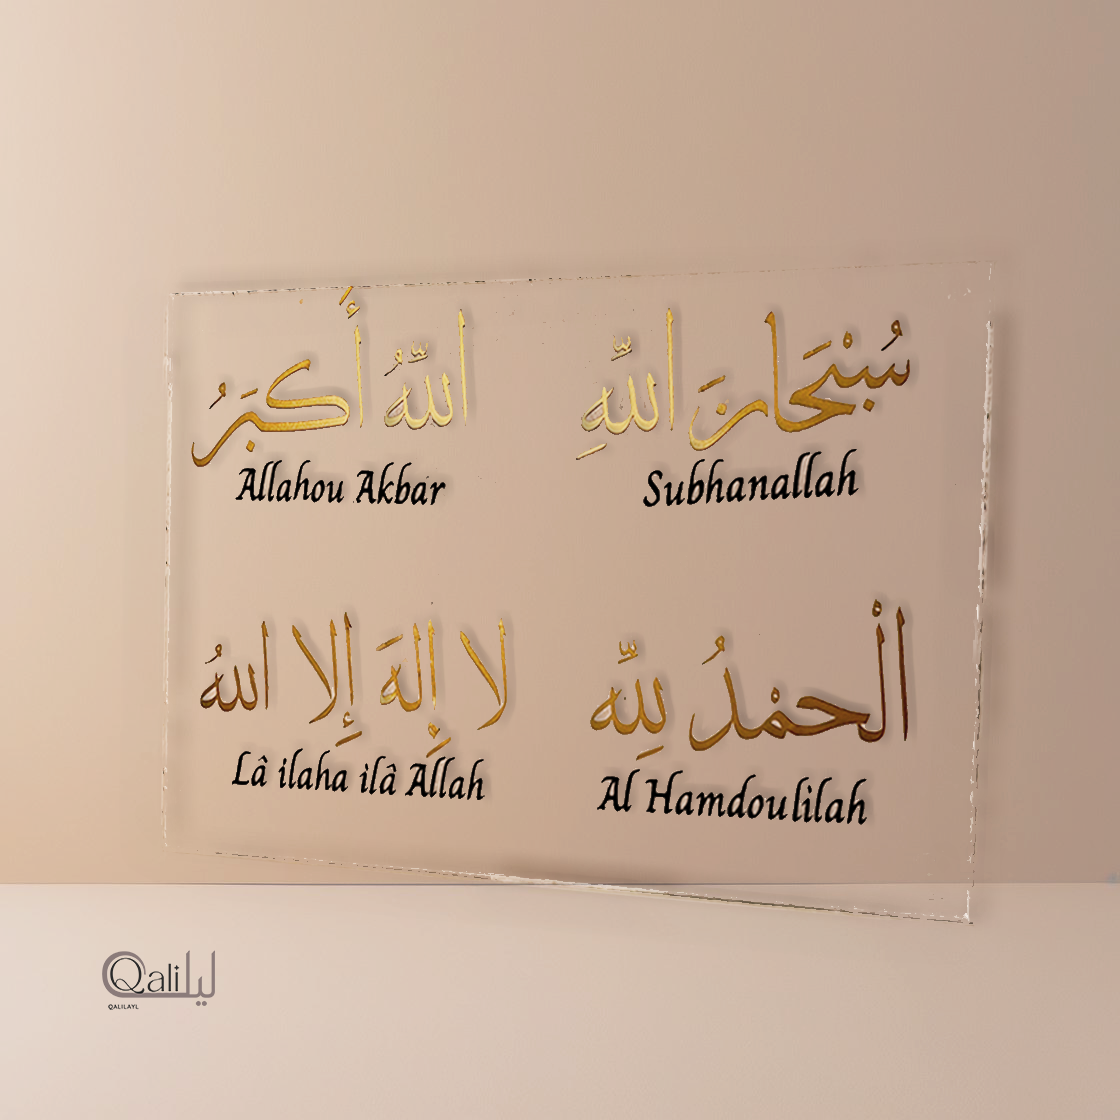 سُبْحَانَ اللّٰهِ
Subhanallah
اللّٰهُ أَكْبَرُ
Allahou Akbar
الْحَمْدُ لِلّٰهِ
Al Hamdoulilah
لا إِلهَ إِلا اللهُ
Lâ ilaha ilâ Allah
Qali ليل
QALILAYL